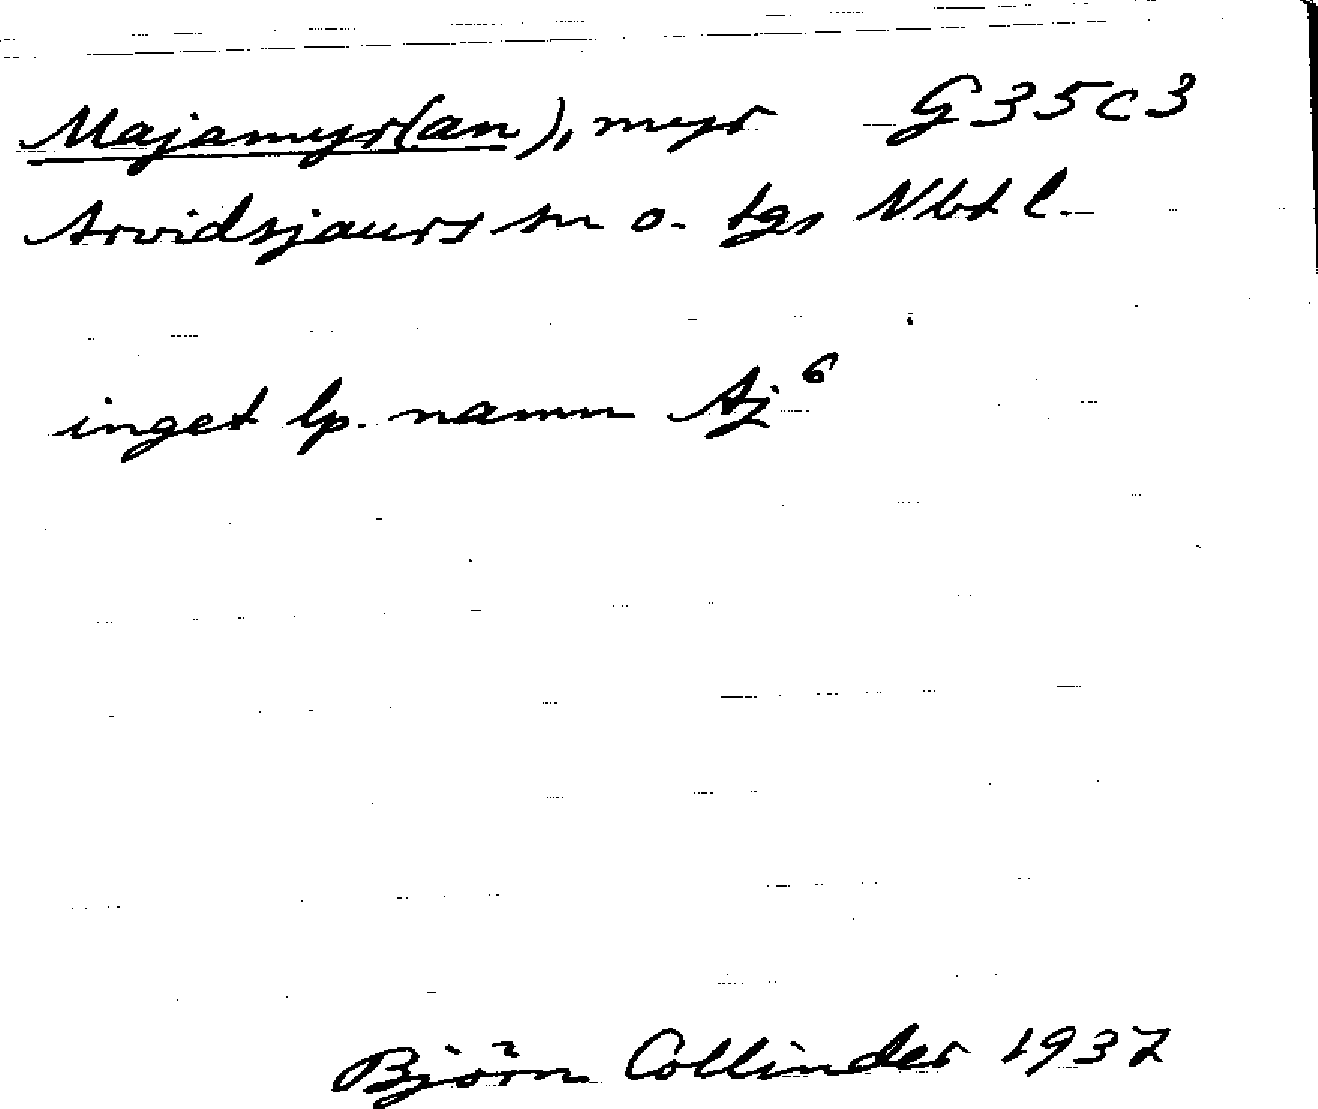 Majamyr(an), myr G35c3
Arvidsjaurs sn o. tgs Nbt l.
inget lp. namn Aj⁶
Björn Collinder 1937